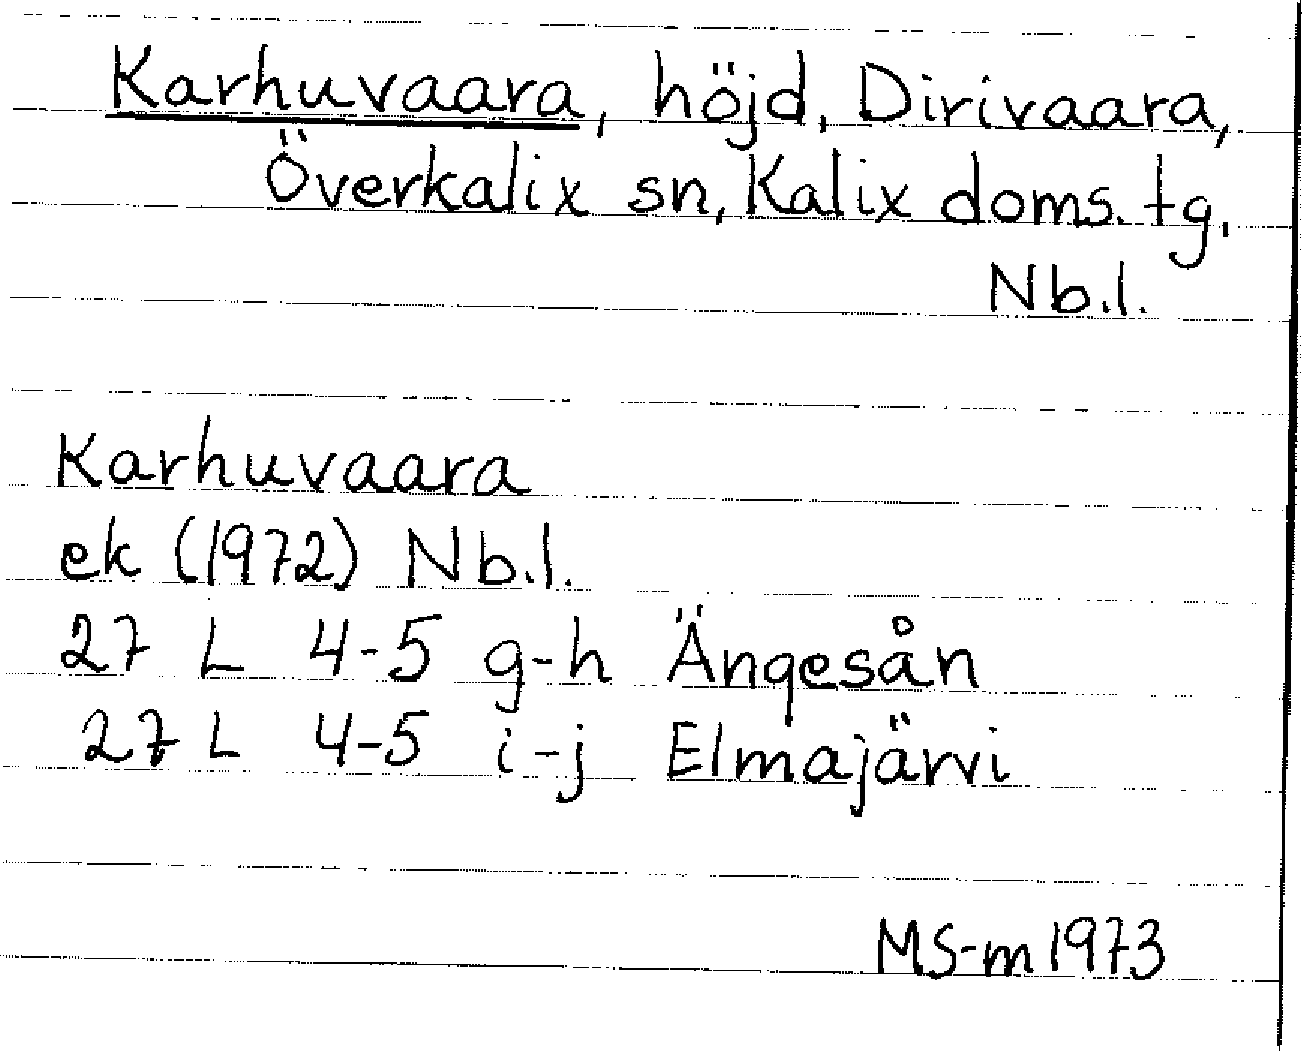 Karhuvaara, höjd, Dirivaara,
Överkalix sn, Kalix doms. tg.
Nb.l.
Karhuvaara
ek (1972) Nb.l.
27 L 4-5 g-h Ängesån
27 L 4-5 i-j Elmajärvi
MS-m 1973